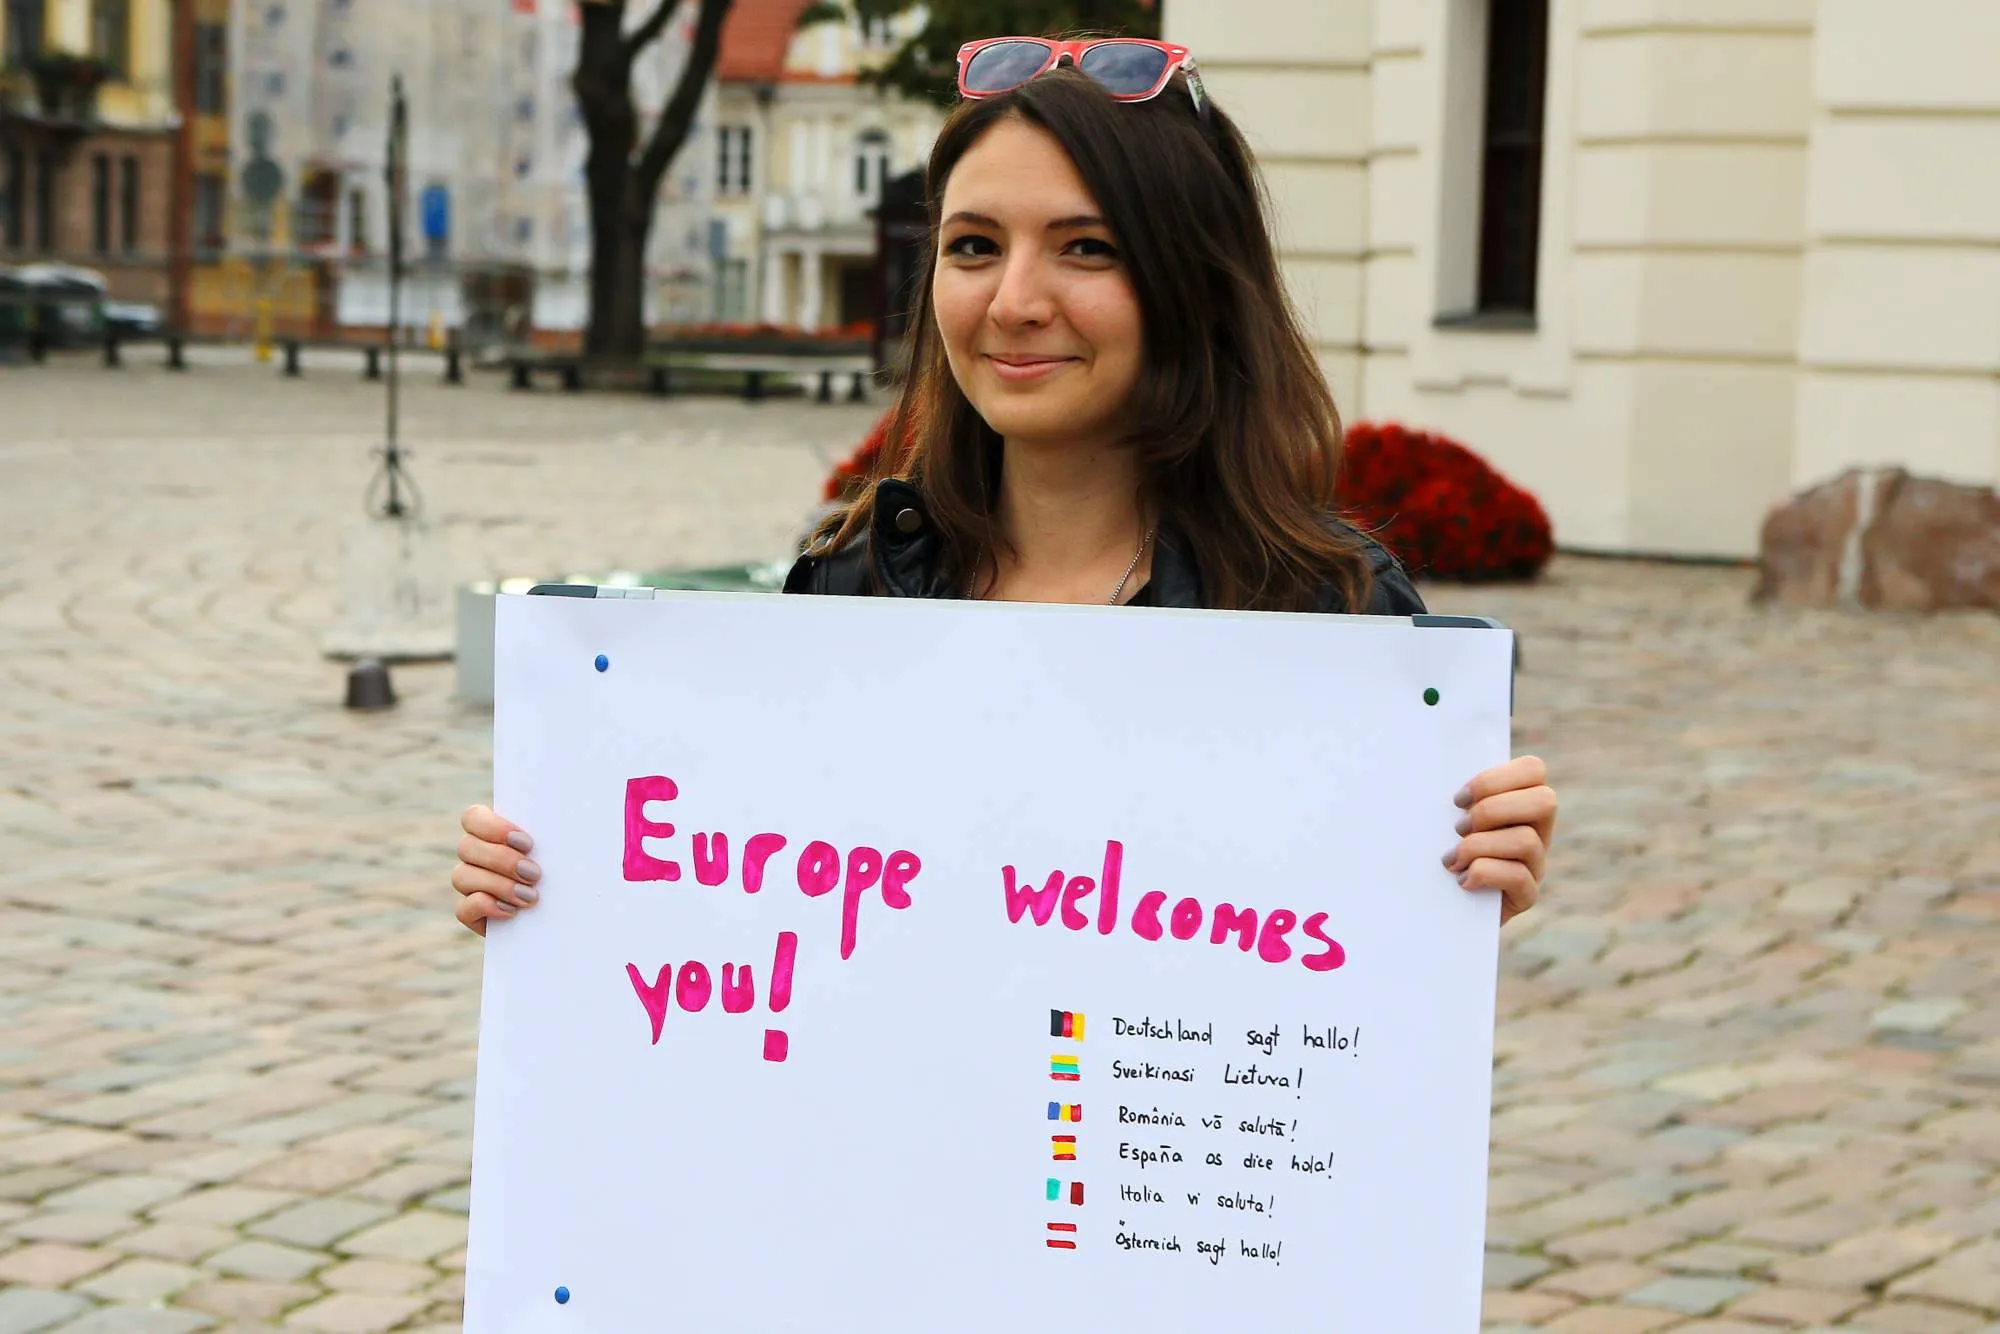 Europe welcomes
you!
Deutschland sagt hallo!
Sveikinasi Lietuva!
România vă salută!
España os dice hola!
Italia vi saluta!
Österreich sagt hallo!